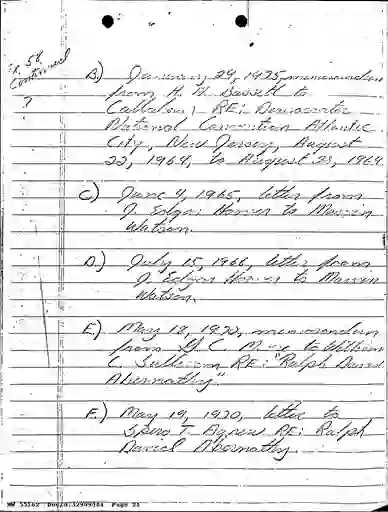 Ex. 58
Continued
B.) January 29, 1975, memorandum
from H. N. Bassett to
Callahan, RE: Democratic
National Convention Atlantic
City, New Jersey, August
22, 1964, to August 28, 1964
C.) June 4, 1965, letter from
J. Edgar Hoover to Marvin
Watson.
D.) July 15, 1966, letter from
J. Edgar Hoover to Marvin
Watson.
E.) May 18, 1970, memorandum
from G. C. to William
C. Sullivan RE: "Ralph David
Abernathy".
F.) May 19, 1970, letter to
Spiro T. Agnew RE: Ralph
David Abernathy.
Page 21